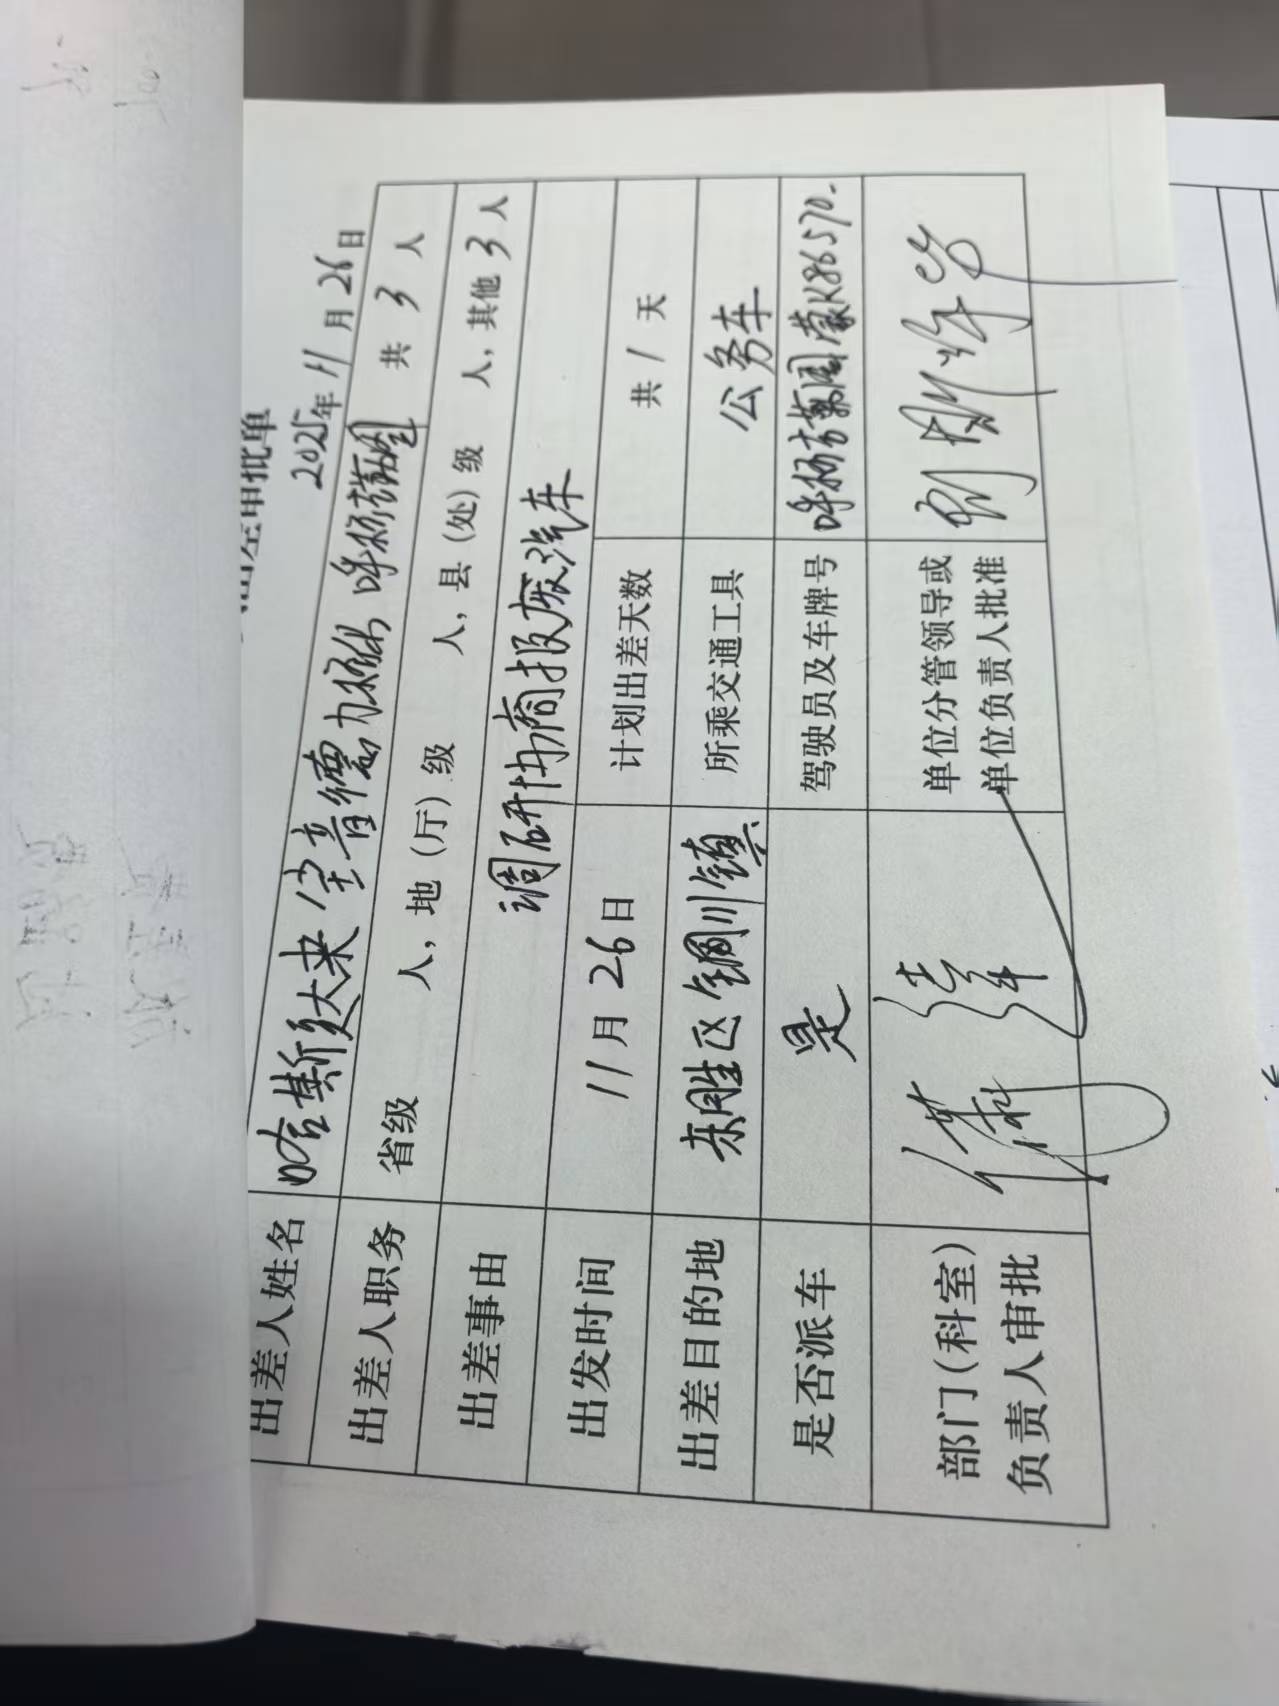 出差审批单
2025年11月26日
出差人姓名 哈斯达来 宝音德力格尔 呼格吉勒图 共 3 人
出差人职务 省级 人，地（厅）级 人，县（处）级 人，其他 3 人
出差事由 调研协商报废汽车
出发时间 11月26日 计划出差天数 共 1 天
出差目的地 东胜区铜川镇 所乘交通工具 公务车
是否派车 是 驾驶员及车牌号 蒙K86570
部门（科室） 单位分管领导或
负责人审批 单位负责人批准